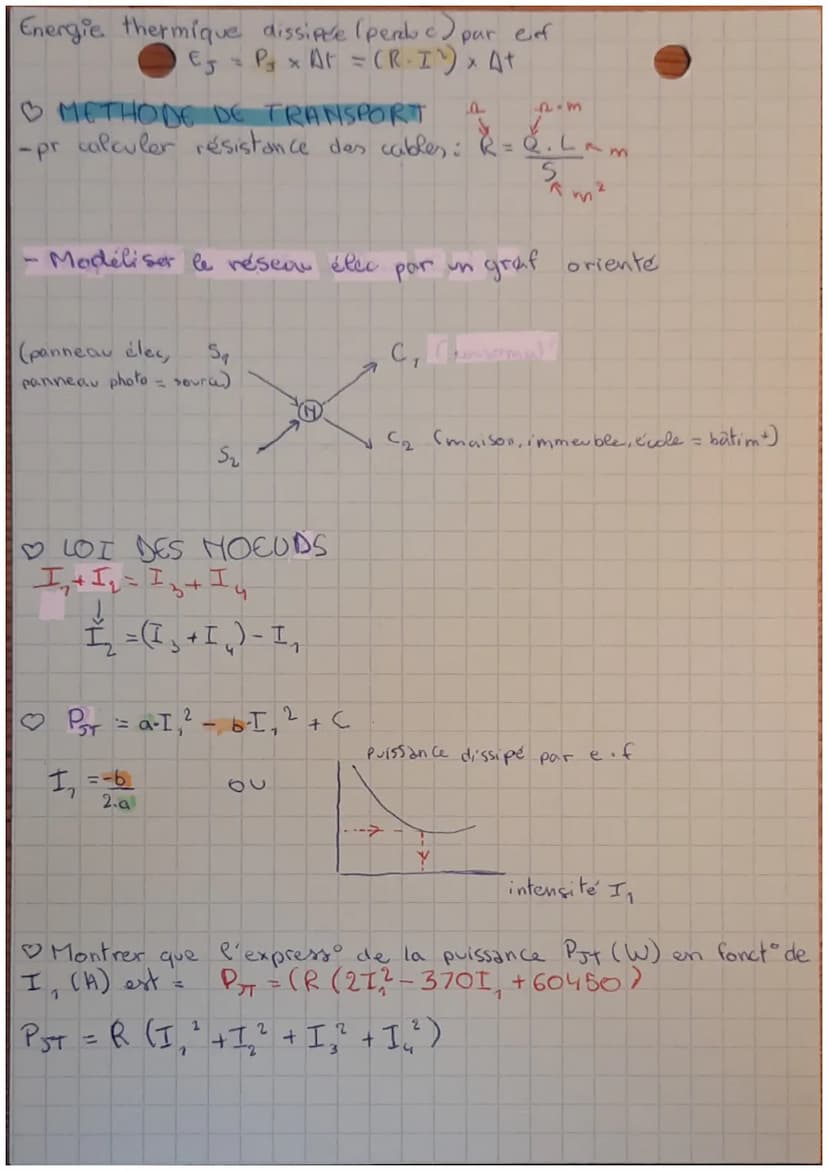 Energie thermique dissipée (perduc) par e.f
EJ = PJ × Δt = (R · I²) × Δt
♡ METHODE DE TRANSPORT
Ω Ω·m
- pr calculer résistance des cables : R = (ρ . L) / S
m
m²
- Modéliser le réseau élec par un graf orienté
(panneau élec, S1 C1
panneau photo = source)
N
S2 C2 (maison, immeuble, école = bâtim⁺)
♡ LOI DES NOEUDS
I1 + I2 = I3 + I4
↓
I2 = (I3 + I4) - I1
♡ PJT = a·I1² - b·I1² + C
puissance dissipé par e.f
I1 = -b / 2.a OU
intensité I1
♡ Montrer que l'express° de la puissance PJt (W) en fonct° de
I1 (A) est = PJT = (R (2I1² - 370I1 + 60450)
PJT = R (I1² + I2² + I3² + I4²)